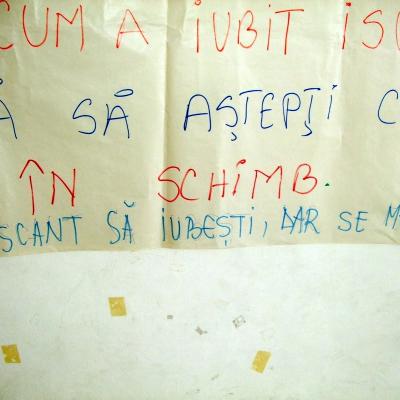 CUM A IUBIT ISU
Ă SĂ AȘTEPȚI C
ÎN SCHIMB.
SCANT SĂ IUBEȘTI, DAR SE M